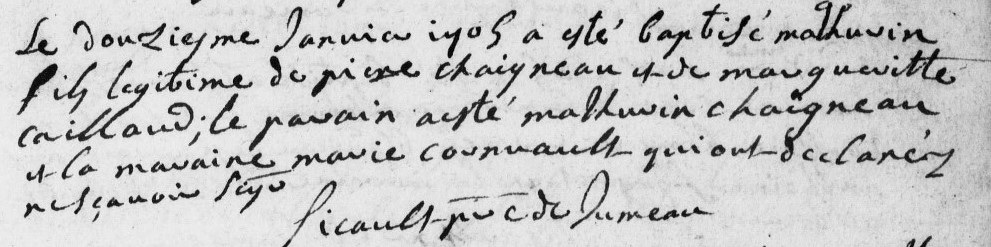 Le douziesme Janvier 1705 a esté baptisé mathurin
fils legitime de pierre chaigneau et de margueritte
caillaud; le parain a esté mathurin chaigneau
et la maraine marie cornuault qui ont declaréz
ne sçavoir sign
Sicault ptre c de Jumeau